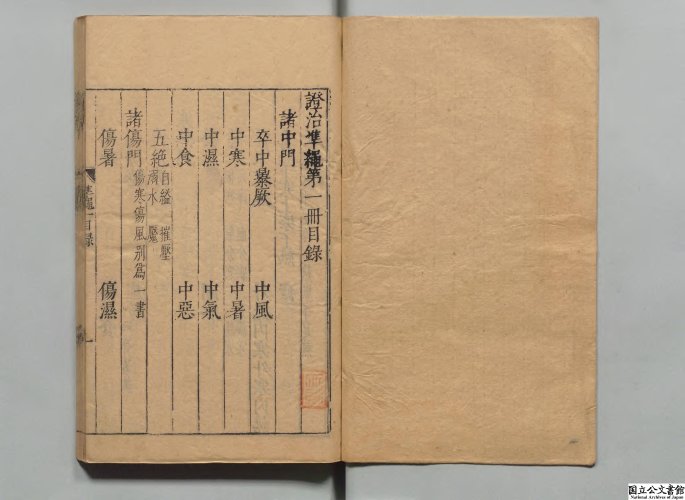 證治準繩第一冊目錄
諸中門
卒中暴厥 中風
中寒 中暑
中濕 中氣
中食 中惡
五絕 自縊 摧壓
溺水 魘
諸傷門 傷寒傷風別為一書
傷暑 傷濕
準繩一目錄
一
国立公文書館
National Archives of Japan